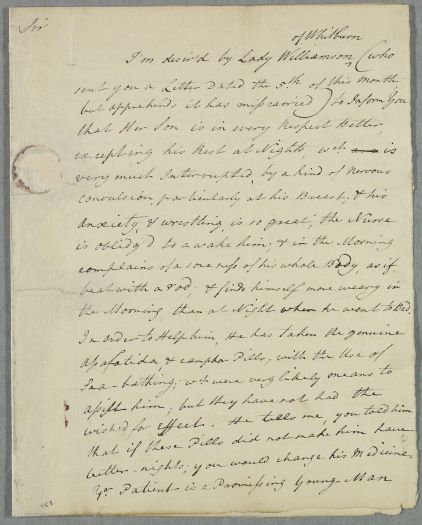 Sir
of Whilburn
I'm desir'd by Lady Williamson, (who
sent you a Letter Dated the 5th of this Month,
but apprehends it has misscarried) to Inform You
that Her Son is in every Respect Better,
excepting his Rest at Nights, wch are is
very much Interrupted, by a kind of Nervous
convulsion, particularly at his Breast; & his
Anxiety, & wrestling, is so great; the Nurse
is oblidg'd to awake him; & in the Morning
complains of a soreness of his whole Body, as if
beat with a rod: & finds himself more weary in
the Morning, than at Night when he went to Bed.
In order to Help him, He has taken the genuine
Assafatida & camphor Pills, with the Use of
Sea-bathing; wh were very likely means to
assist him, but they have not had the
wish'd for effect. He tells me, you told him
that if these Pills did not make him have
better nights; you would change his Medicine
Yr Patient is a Promissing Young Man